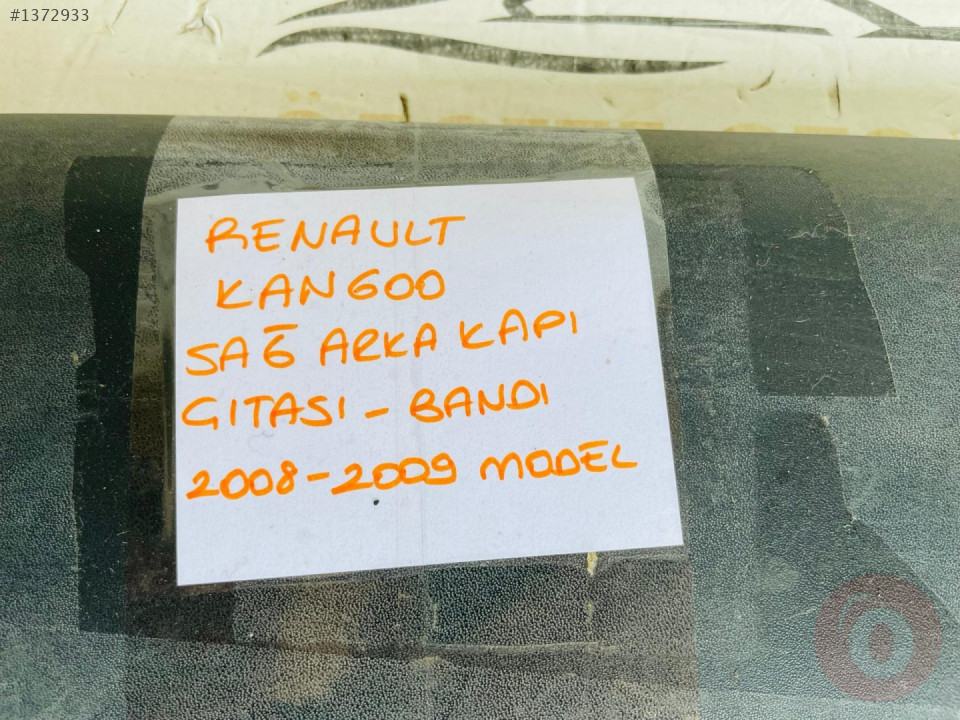 #1372933
RENAULT
KANGOO
SAĞ ARKA KAPI
GITASI - BANDI
2008-2009 MODEL